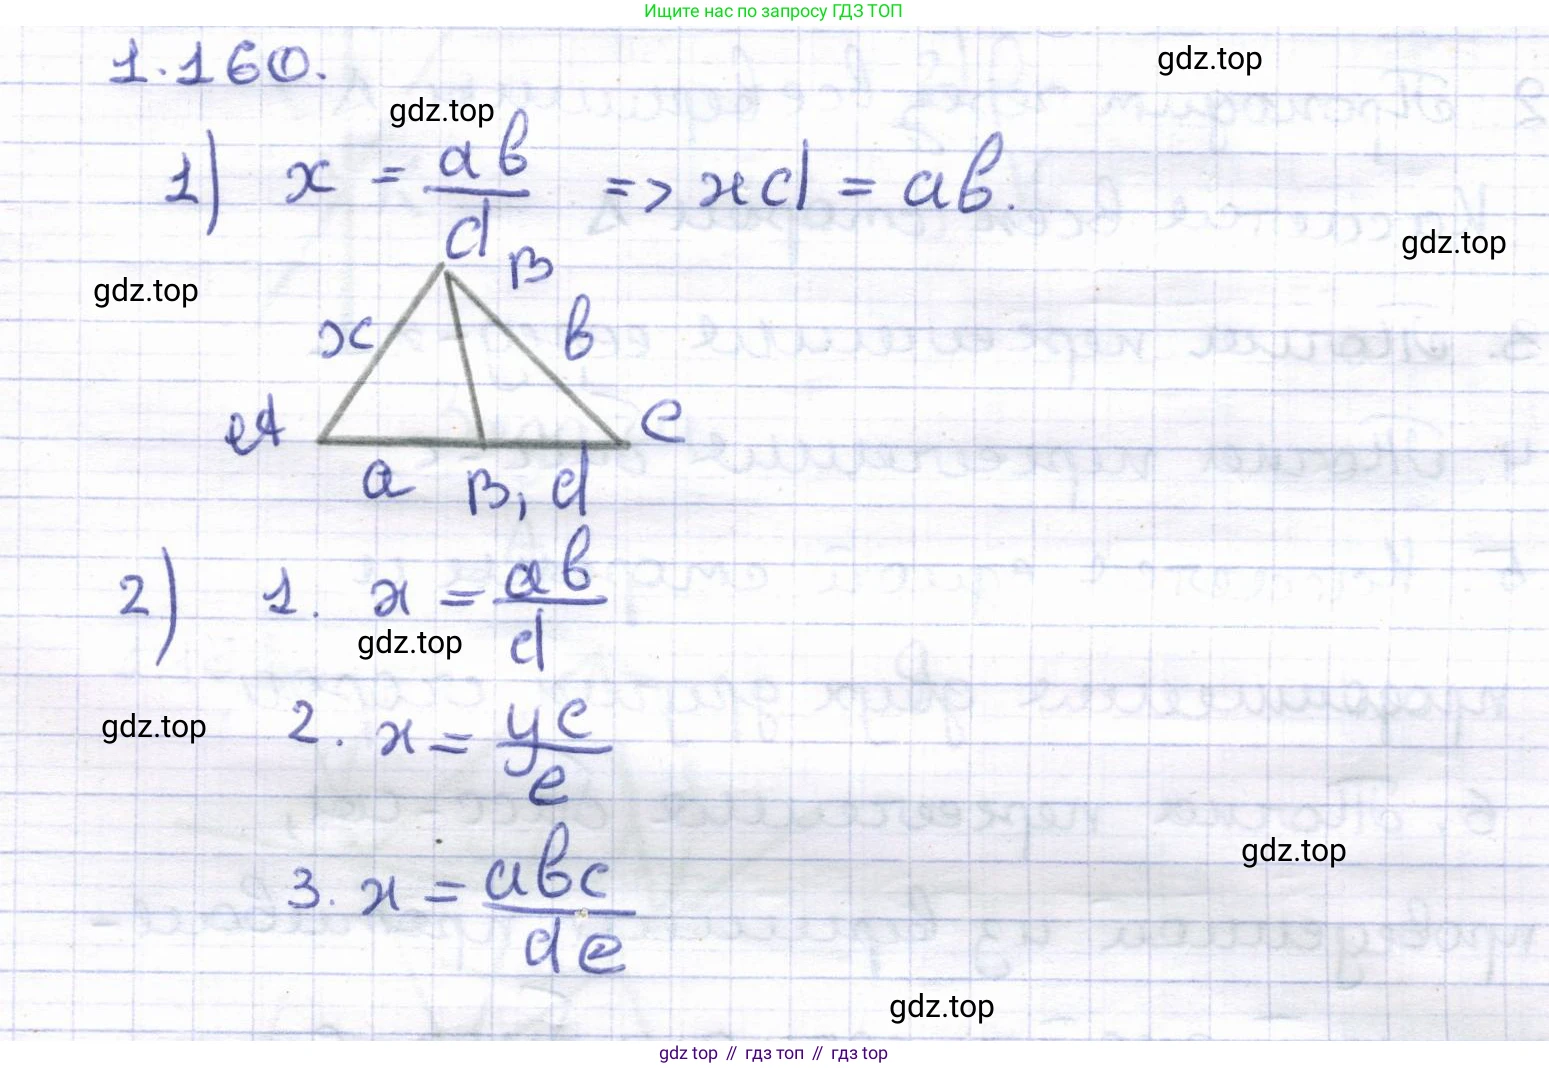 Ищите нас по запросу ГДЗ ТОП
1.160.
gdz.top
gdz.top
1) x = ab/d => xd = ab.
gdz.top
gdz.top
B
x
b
A
C
a
B₁
d
2) 1. x = ab/d
gdz.top
gdz.top
2. x = yc/e
3. x = abc/de
gdz.top
gdz.top
gdz top // гдз топ // гдз top